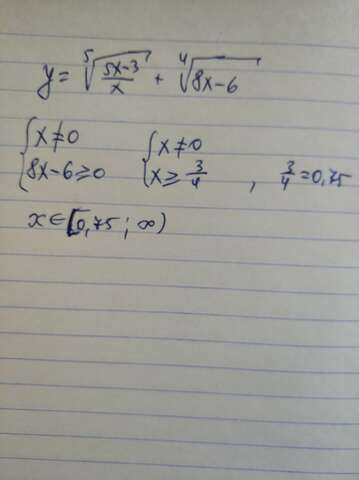 y = ⁵√((5x-3)/x) + ⁴√(8x-6)
{x≠0 {x≠0
{8x-6≥0 {x≥ 3/4 , 3/4 = 0,75
x∈[0,75 ; ∞)